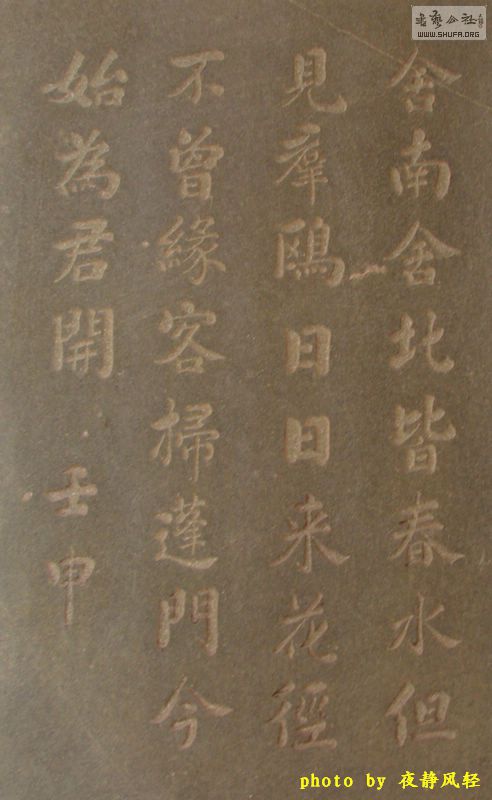 舍南舍北皆春水但
見羣鷗日日来花徑
不曾緣客掃蓬門今
始為君開 壬申
书艺公社
WWW.SHUFA.ORG
photo by 夜静风轻